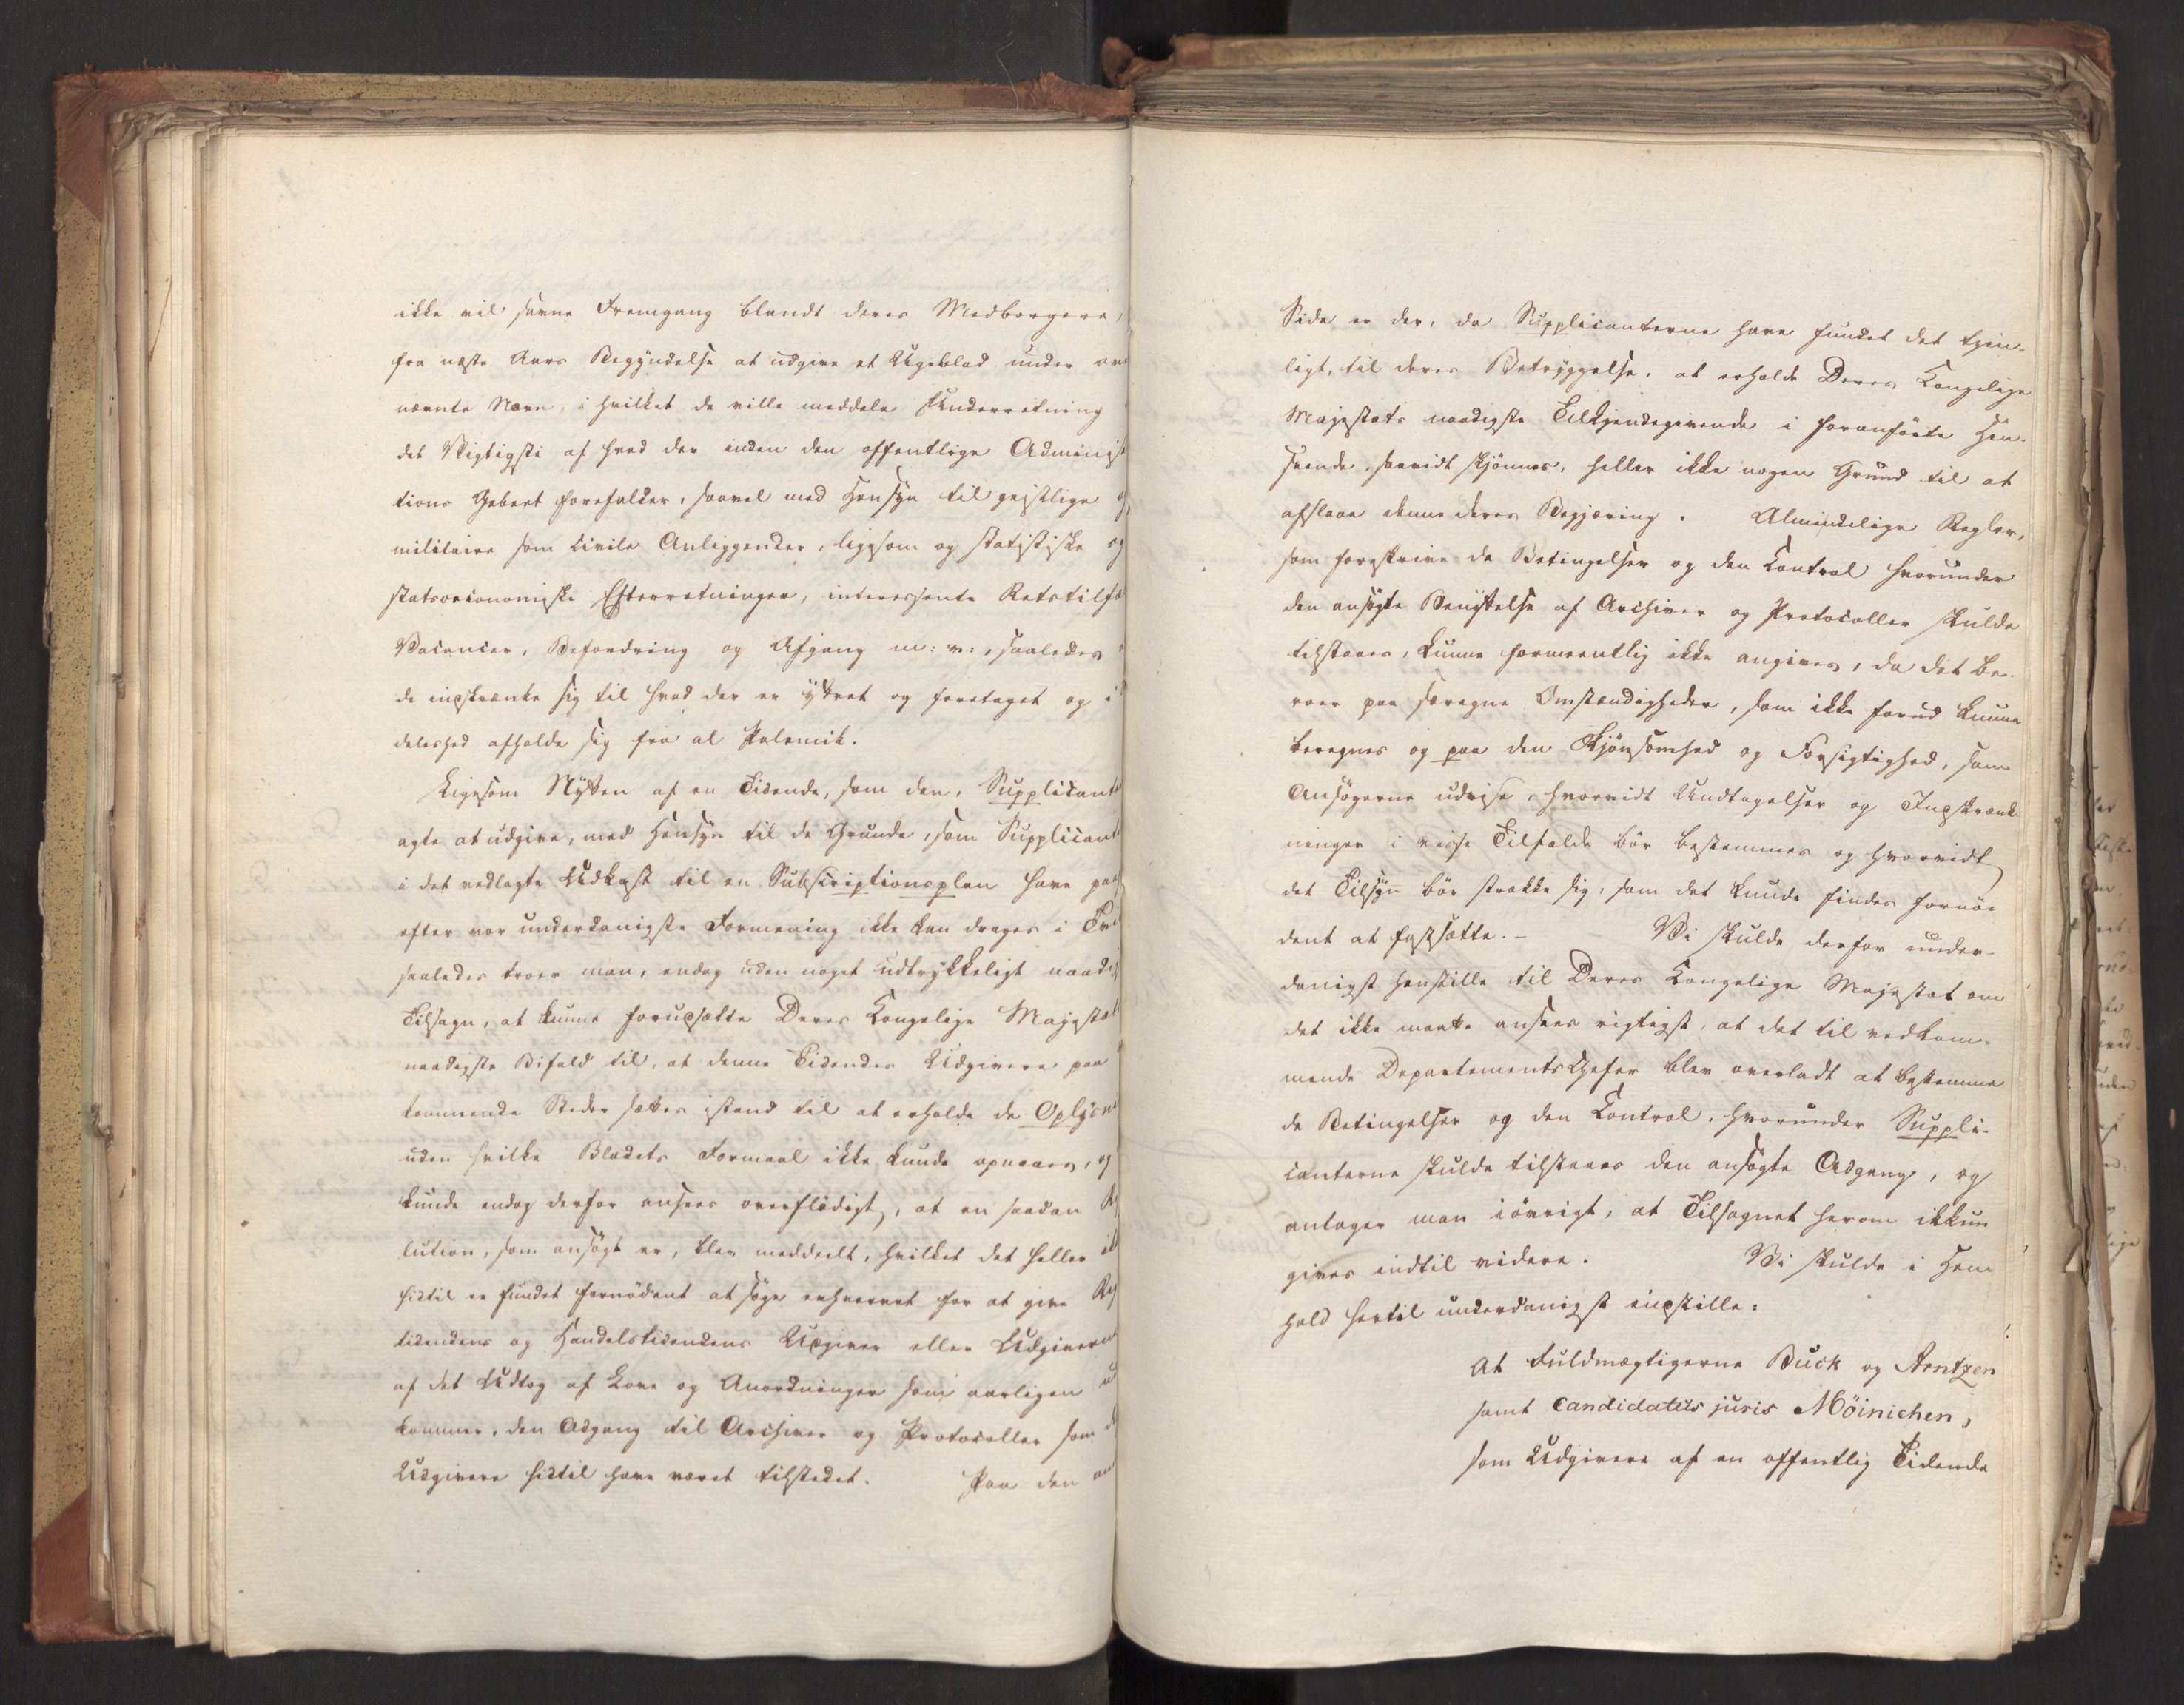 ikke vil savne Fremgang blandt deres Medborgere,
fra næste Aars Begyndelse at udgive et Ugeblad under
nævnte Navn, i hvilket de ville meddele Underretning
det Vigtigste af hvad der inden den offentlige Administ
tions Gebeet forefalder, saavel med Hensyn til geistlige og
militaire som Civile Anliggender, ligesom og statistiske og
statsoeconomiske Efterretninger, interessante Retstilfæ
Vacancer, Befordring og Afgang m: v:, saaledes
de indskrænke sig til hvad der er yttret og foretaget og i
deleshed afholde sig fra al Polemik.
Ligesom Nytten af en Tidende, som den, Supplicante
agte at udgive, med Hensyn til de Grunde, som Supplicant
i det vedlagte Udkast til en Subscriptionsplan have paa
efter vor underdanigste Formening ikke kan drages i Tvi
saaledes troer man, endog uden noget udtrykkeligt naadig
Tilsagn, at kunne forudsætte Deres Kongelige Majestæt
naadigste Bifald til, at denne Tidendes Udgivere paa
kommende Steder sættes istand til at erholde de Oplysn
uden hvilke Bladets Formaal ikke kunde opnaaes, og
kunde endog derfor ansees overflødigt, at en saadan Re
lution, som ansøgt er, blev meddeelt, hvilket det heller ik
hidtil er fundet fornødent at søge erhvervet for at give Rig
tidendens og Handelstidendens Udgiver eller Udgiverne
af det Udtog af Love og Anordninger som aarligen u
kommer, den Adgang til Archiver og Protocoller som d
Udgivere hidtil have været tilstedet. Paa den an
Side er der, da Supplicanterne have fundet det tjen-
ligt, til deres Betryggelse, at erholde Deres Kongelige
Majestæts naadigste Tilkjendegivende i foranførte Hen-
seende, saavidt skjønnes, heller ikke nogen Grund til at
afslaae denne deres Begjæring. Almindelige Regler,
som foreskrive de Betingelser og den Control hvorunder
den ansøgte Benyttelse af Archiver og Protocoller skulde
tilstaaes, kunne formeentlig ikke angives, da det be-
roer paa særegne Omstændigheder, som ikke forud kunne
beregnes og paa den Skjønsomhed og Forsigtighed, som
Ansøgerne udvise, hvorvidt Undtagelser og Indskrænk
ninger i visse Tilfælde bør bestemmes og hvorvidt
det Tilsyn bør strække sig, som det kunde findes fornø-
dent at fastsætte.- Vi skulde derfor under-
danigst henstille til Deres Kongelige Majestæt om
det ikke maatte ansees rigtigst, at det til vedkom-
mende Departements Chefer blev overladt at bestemme
de Betingelser og den Control, hvorunder Suppli-
canterne skulde tilstaaes den ansøgte Adgang, og
antager man iøvrigt, at Tilsagnet herom ikkun
gives indtil videre. Vi skulde i Hen-
hold hertil underdanigst indstille:
At Fuldmægtigerne Buck og Arntzen
samt Candidatus juris Möinichen,
som Udgivere af en offentlig Tidende